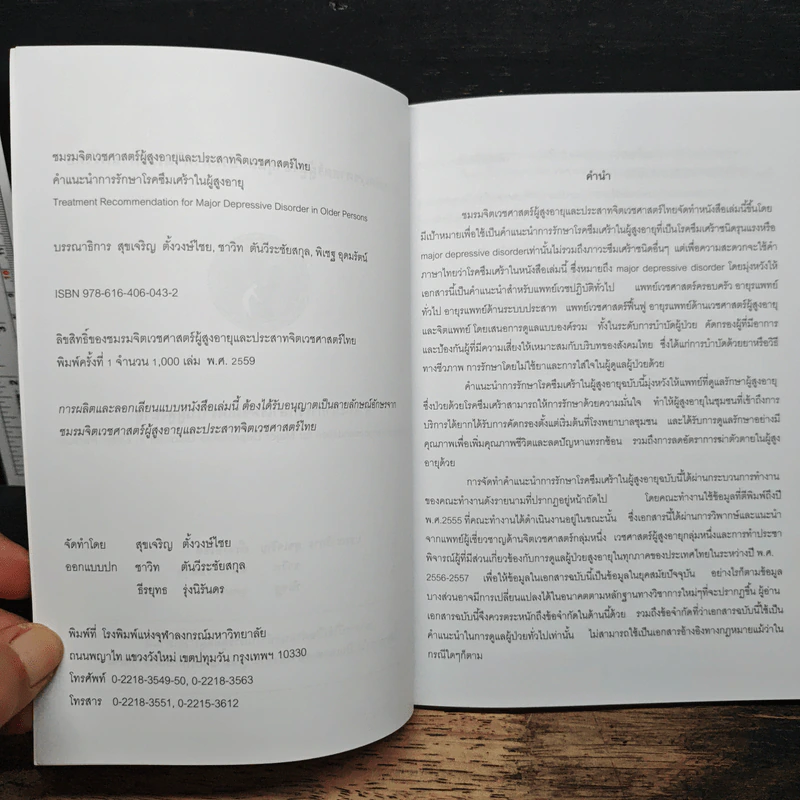 ชมรมจิตเวชศาสตร์ผู้สูงอายุและประสาทจิตเวชศาสตร์ไทย
คำแนะนำการรักษาโรคซึมเศร้าในผู้สูงอายุ
Treatment Recommendation for Major Depressive Disorder in Older Persons
บรรณาธิการ สุขเจริญ ตั้งวงษ์ไชย, ชาวิท ตันวีระชัยสกุล, พิเชฐ อุดมรัตน์
ISBN 978-616-406-043-2
ลิขสิทธิ์ของชมรมจิตเวชศาสตร์ผู้สูงอายุและประสาทจิตเวชศาสตร์ไทย
พิมพ์ครั้งที่ 1 จำนวน 1,000 เล่ม พ.ศ. 2559
การผลิตและลอกเลียนแบบหนังสือเล่มนี้ ต้องได้รับอนุญาตเป็นลายลักษณ์อักษรจาก
ชมรมจิตเวชศาสตร์ผู้สูงอายุและประสาทจิตเวชศาสตร์ไทย
จัดทำโดย สุขเจริญ ตั้งวงษ์ไชย
ออกแบบปก ชาวิท ตันวีระชัยสกุล
ธีรยุทธ รุ่งนิรันดร
พิมพ์ที่ โรงพิมพ์แห่งจุฬาลงกรณ์มหาวิทยาลัย
ถนนพญาไท แขวงวังใหม่ เขตปทุมวัน กรุงเทพฯ 10330
โทรศัพท์ 0-2218-3549-50, 0-2218-3563
โทรสาร 0-2218-3551, 0-2215-3612
คำนำ
ชมรมจิตเวชศาสตร์ผู้สูงอายุและประสาทจิตเวชศาสตร์ไทยจัดทำหนังสือเล่มนี้ขึ้นโดย
มีเป้าหมายเพื่อใช้เป็นคำแนะนำการรักษาโรคซึมเศร้าในผู้สูงอายุที่เป็นโรคซึมเศร้าชนิดรุนแรงหรือ
major depressive disorderเท่านั้นไม่รวมถึงภาวะซึมเศร้าชนิดอื่นๆ แต่เพื่อความสะดวกจะใช้คำ
ภาษาไทยว่าโรคซึมเศร้าในหนังสือเล่มนี้ ซึ่งหมายถึง major depressive disorder โดยมุ่งหวังให้
เอกสารนี้เป็นคำแนะนำสำหรับแพทย์เวชปฏิบัติทั่วไป แพทย์เวชศาสตร์ครอบครัว อายุรแพทย์
ทั่วไป อายุรแพทย์ด้านระบบประสาท แพทย์เวชศาสตร์ฟื้นฟู อายุรแพทย์ด้านเวชศาสตร์ผู้สูงอายุ
และจิตแพทย์ โดยเสนอการดูแลแบบองค์รวม ทั้งในระดับการบำบัดผู้ป่วย คัดกรองผู้ที่มีอาการ
และป้องกันผู้ที่มีความเสี่ยงให้เหมาะสมกับบริบทของสังคมไทย ซึ่งได้แก่การบำบัดด้วยยาหรือวิธี
ทางชีวภาพ การรักษาโดยไม่ใช้ยาและการใส่ใจในผู้ดูแลผู้ป่วยด้วย
คำแนะนำการรักษาโรคซึมเศร้าในผู้สูงอายุฉบับนี้มุ่งหวังให้แพทย์ที่ดูแลรักษาผู้สูงอายุ
ซึ่งป่วยด้วยโรคซึมเศร้าสามารถให้การรักษาด้วยความมั่นใจ ทำให้ผู้สูงอายุในชุมชนที่เข้าถึงการ
บริการได้ยากได้รับการคัดกรองตั้งแต่เริ่มต้นที่โรงพยาบาลชุมชน และได้รับการดูแลรักษาอย่างมี
คุณภาพเพื่อเพิ่มคุณภาพชีวิตและลดปัญหาแทรกซ้อน รวมถึงการลดอัตราการฆ่าตัวตายในผู้สูง
อายุด้วย
การจัดทำคำแนะนำการรักษาโรคซึมเศร้าในผู้สูงอายุฉบับนี้ได้ผ่านกระบวนการทำงาน
ของคณะทำงานดังรายนามที่ปรากฏอยู่หน้าถัดไป โดยคณะทำงานใช้ข้อมูลที่ตีพิมพ์ถึงปี
พ.ศ.2555 ที่คณะทำงานได้ดำเนินงานอยู่ในขณะนั้น ซึ่งเอกสารนี้ได้ผ่านการวิพากษ์และแนะนำ
จากแพทย์ผู้เชี่ยวชาญด้านจิตเวชศาสตร์กลุ่มหนึ่ง เวชศาสตร์ผู้สูงอายุกลุ่มหนึ่งและการทำประชา
พิจารณ์ผู้ที่มีส่วนเกี่ยวข้องกับการดูแลผู้ป่วยสูงอายุในทุกภาคของประเทศไทยในระหว่างปี พ.ศ.
2556-2557 เพื่อให้ข้อมูลในเอกสารฉบับนี้เป็นข้อมูลในยุคสมัยปัจจุบัน อย่างไรก็ตามข้อมูล
บางส่วนอาจมีการเปลี่ยนแปลงได้ในอนาคตตามหลักฐานทางวิชาการใหม่ๆที่จะปรากฏขึ้น ผู้อ่าน
เอกสารฉบับนี้จึงควรตระหนักถึงข้อจำกัดในด้านนี้ด้วย รวมถึงข้อจำกัดที่ว่าเอกสารฉบับนี้ใช้เป็น
คำแนะนำในการดูแลผู้ป่วยทั่วไปเท่านั้น ไม่สามารถใช้เป็นเอกสารอ้างอิงทางกฎหมายแม้ว่าใน
กรณีใดๆก็ตาม